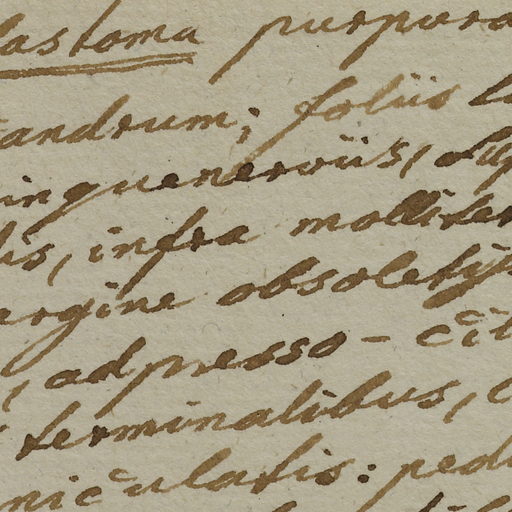 lastoma purpura
andrum; foliis
inquenerviis, sup
lis, infra molliter
argine obsolet
, adpresso-cil
terminalibus, c
niculatis: pedu